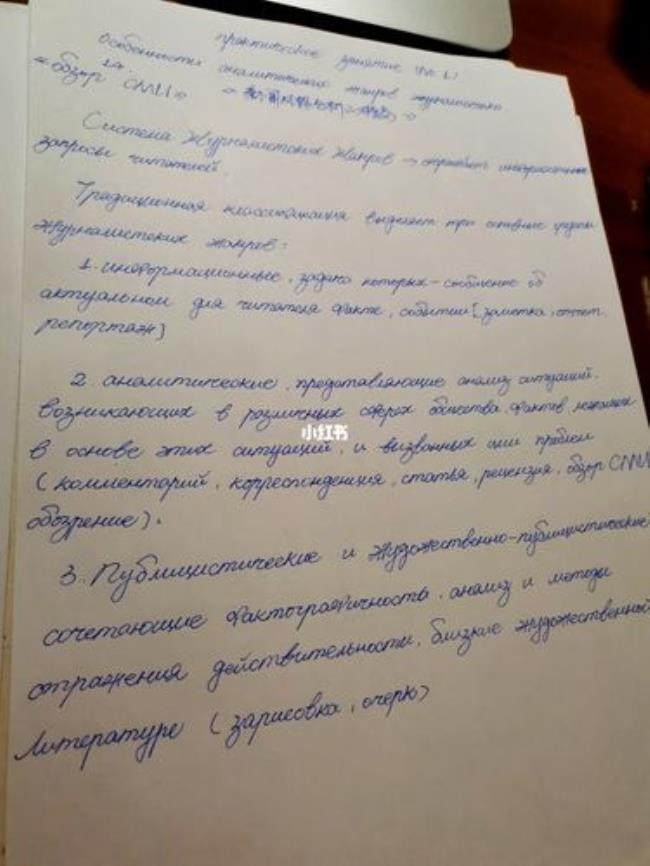 практическое занятие
Особенности аналитических жанров журналистики
14.
«обзор СМИ»
Система журналистских жанров → отражает информационные
запросы читателей.
Традиционная классификация выделяет три основные группы
журналистских жанров:
1. информационные, задача которых - сообщение об
актуальном для читателя факте, событии [заметка, отчет,
репортаж]
2. аналитические, представляющие анализ ситуаций,
возникающих в различных сферах общества, фактов, лежащих
в основе этих ситуаций, и вызванных ими проблем
小红书
(комментарий, корреспонденция, статья, рецензия, обзор СМИ
обозрение).
3. Публицистические и художественно-публицистические
сочетающие фактографичность, анализ и методы
отражения действительности, близкие художественный
литературе (зарисовка, очерк)